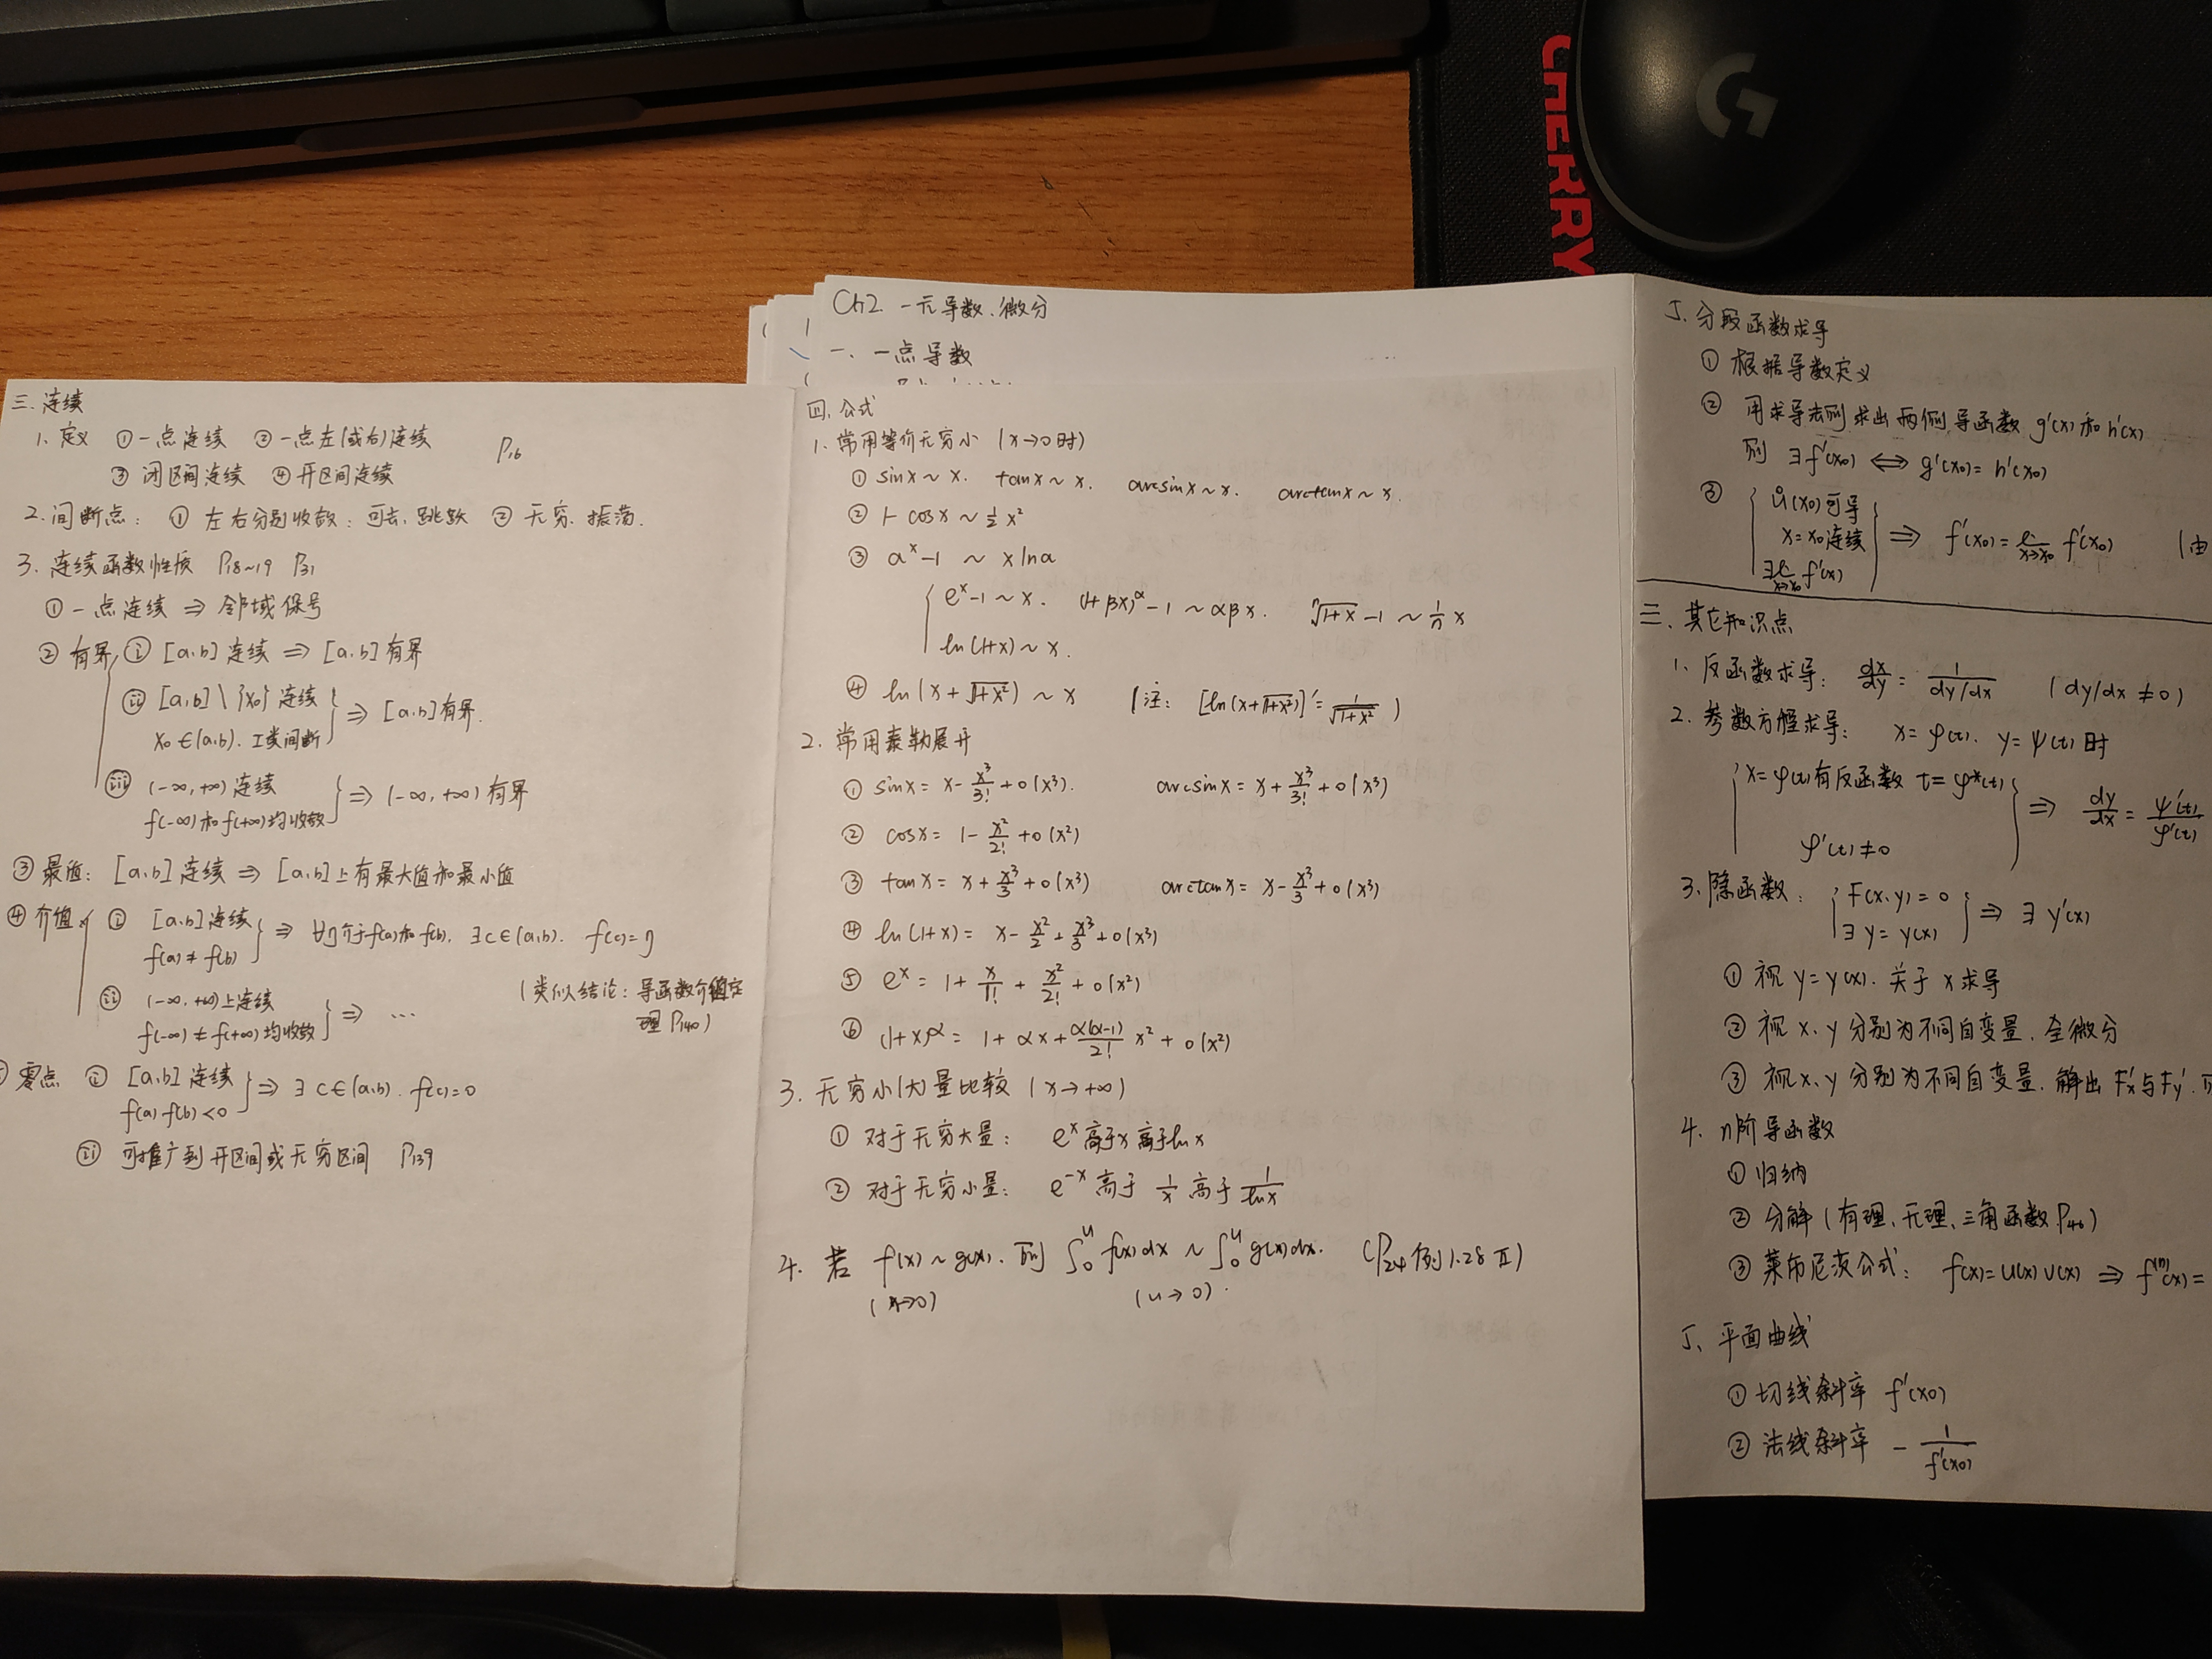 CHERRY
G
Ch2. 一元导数、微分
一、一点导数
三. 连续
1. 定义 ①一点连续 ②一点左(或右)连续 P16
③ 闭区间连续 ④开区间连续
2. 间断点: ① 左右分别收敛: 可去、跳跃 ② 无穷、振荡.
3. 连续函数性质 P18~19 P31
①一点连续 ⇒ 邻域保号
② 有界 ⅰ [a,b] 连续 ⇒ [a,b] 有界
ⅱ [a,b] \ {x0} 连续
x0 ∈(a,b). I类间断 } ⇒ [a,b]有界.
ⅲ (-∞,+∞) 连续
f(-∞)和f(+∞)均收敛 } ⇒ (-∞,+∞) 有界
③ 最值: [a,b] 连续 ⇒ [a,b]上有最大值和最小值
④ 介值 ⅰ [a,b]连续
f(a)≠f(b) } ⇒ ∀η介于f(a)和f(b), ∃c∈(a,b). f(c)=η
ⅱ (-∞,+∞)上连续
f(-∞)≠f(+∞)均收敛 } ⇒ …
(类似结论: 导函数介值定
理 P140)
零点 ⅰ [a,b] 连续
f(a)·f(b)<0 } ⇒ ∃ c∈(a,b). f(c)=0
ⅱ 可推广到开区间或无穷区间 P139
四. 公式
1. 常用等价无穷小 (x→0时)
① sinx~x. tanx~x. arcsinx~x. arctanx~x.
② 1-cosx~½x²
③ a^x-1 ~ xlna
{ e^x-1~x. (1+βx)^α-1~αβx. ⁿ√(1+x)-1~(1/n)x
ln(1+x)~x.
④ ln(x+√(1+x²))~x (注: [ln(x+√(1+x²))]'=1/√(1+x²) )
2. 常用泰勒展开
① sinx= x-x³/3!+o(x³). arcsinx= x+x³/3!+o(x³)
② cosx= 1-x²/2!+o(x²)
③ tanx= x+x³/3+o(x³) arctanx= x-x³/3+o(x³)
④ ln(1+x)= x-x²/2+x³/3+o(x³)
⑤ e^x= 1+x/1!+x²/2!+o(x²)
⑥ (1+x)^α= 1+αx+α(α-1)/2! x²+o(x²)
3. 无穷小(大)量比较 (x→+∞)
① 对于无穷大量: e^x高于x高于lnx
② 对于无穷小量: e^-x高于 1/x 高于 1/lnx
4. 若 f(x)~g(x). 则 ∫₀ᵘ f(x)dx ~ ∫₀ᵘ g(x)dx. (P24例1.28 Ⅱ)
(x→0) (u→0).
5. 分段函数求导
① 根据导数定义
② 用求导法则求出两侧导函数 g'(x)和h'(x)
则 ∃f'(x0) ⇔ g'(x0)= h'(x0)
③ { Ů(x0)可导
x=x0连续 } ⇒ f'(x0)= lim x→x0 f'(x0) (由
∃lim x→x0 f'(x)
三. 其它知识点
1. 反函数求导: dx/dy= 1/(dy/dx) (dy/dx≠0)
2. 参数方程求导: x=φ(t). y=ψ(t)时
{ x=φ(t)有反函数 t=φ*(t)
φ'(t)≠0 } ⇒ dy/dx=ψ'(t)/φ'(t)
3. 隐函数: { F(x,y)=0
∃ y=y(x) } ⇒ ∃ y'(x)
① 视 y=y(x). 关于 x 求导
② 视 x、y 分别为不同自变量. 全微分
③ 视x、y 分别为不同自变量. 解出 F'x与Fy'.
4. n阶导函数
① 归纳
② 分解 (有理、无理、三角函数 P46)
③ 莱布尼茨公式: f(x)=u(x)v(x) ⇒ f⁽ⁿ⁾(x)=
5、平面曲线
① 切线斜率 f'(x0)
② 法线斜率 - 1/f'(x0)